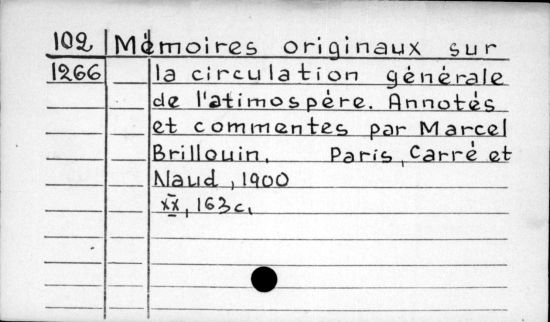 102 Mémoires originaux sur
1266 la circulation générale
de l'atimospère. Annotés
et commentes par Marcel
Brillouin. Paris, Carré et
Naud, 1900
XX, 163c.